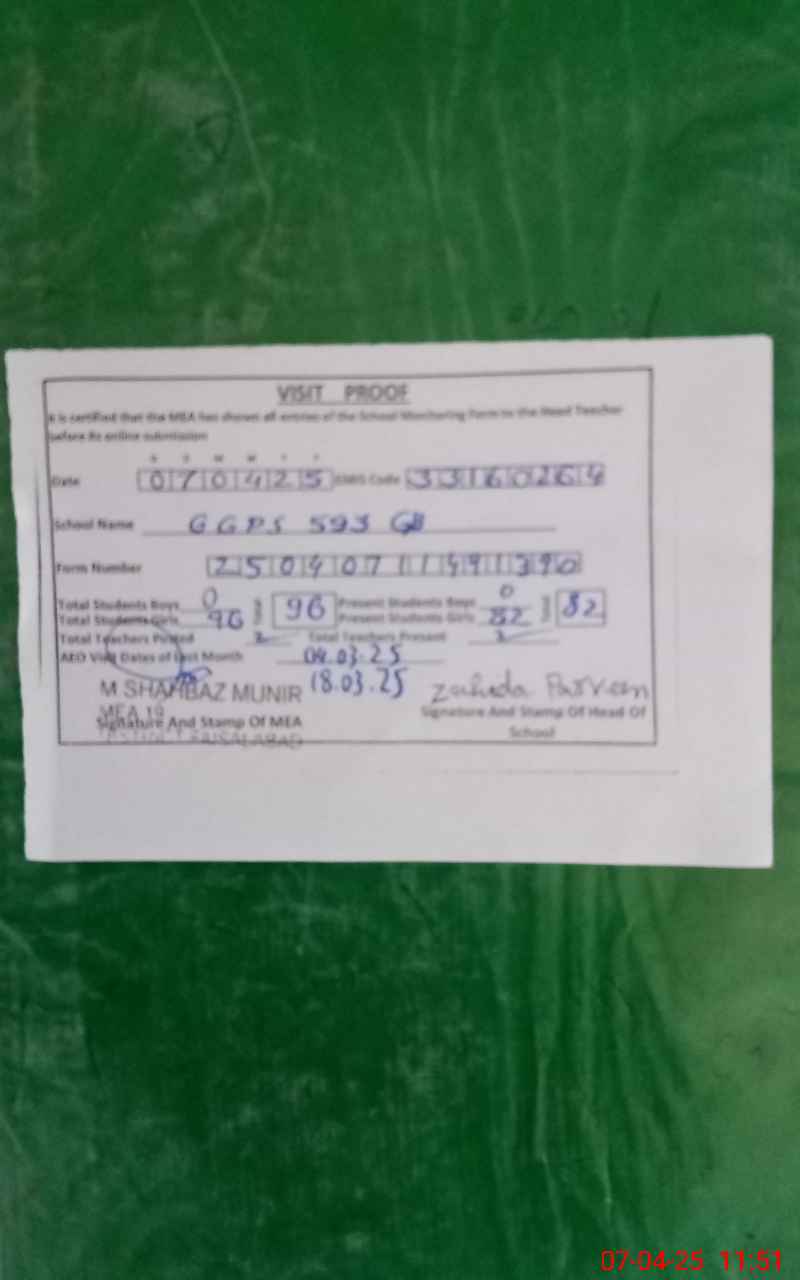 VISIT PROOF
It is certified that the MEA has shown all entries of the School Monitoring Form to the Head Teacher
before its online submission
D D M M Y Y
Date 070425 EMIS Code 33160264
School Name GGPS 593 GB
Form Number
Total Students Boys 0 Total 96 Present Students Boys 0 Total 82
Total Students Girls 96 Present Students Girls 82
Total Teachers Posted 2 Total Teachers Present 2
AEO Visit Dates of Last Month 04.03.25
18.03.25
M SHAHBAZ MUNIR Zahida Parveen
MEA 19
Signature And Stamp Of MEA Signature And Stamp Of Head Of
School
DISTRICT FAISALABAD
07-04-25 11:51